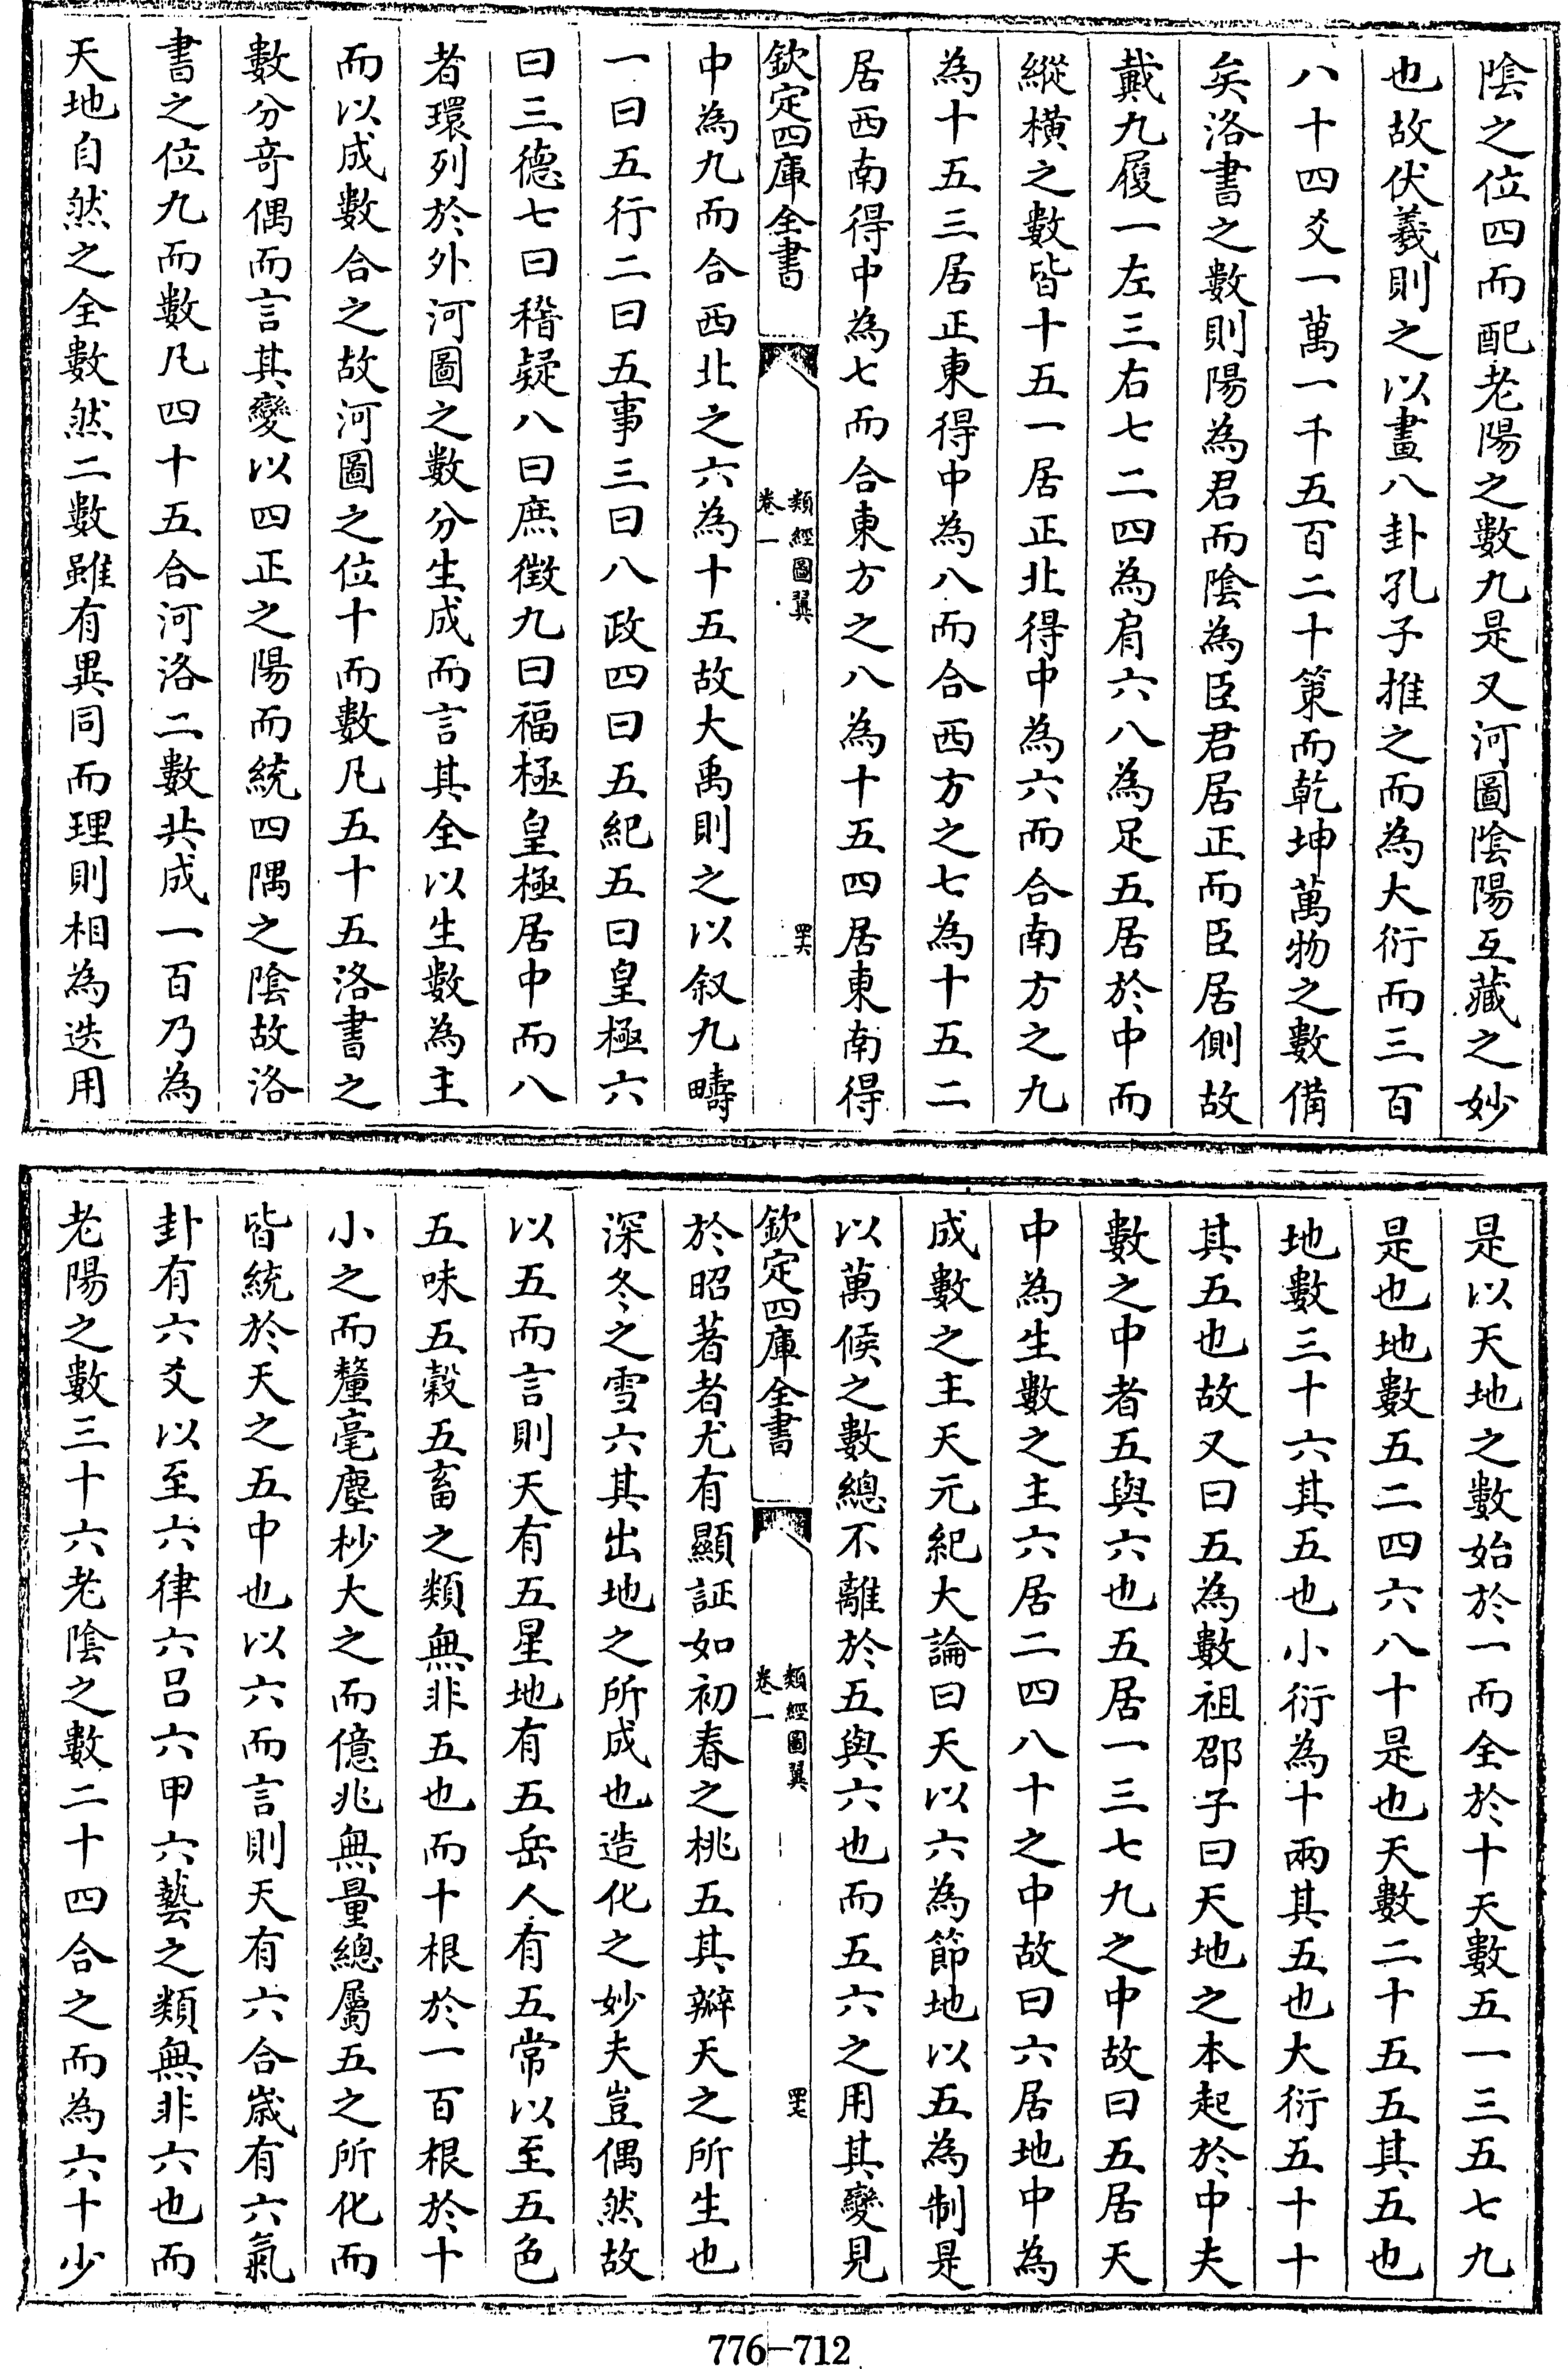 陰之位四而配老陽之數九是又河圖陰陽互藏之妙
也故伏羲則之以畫八卦孔子推之而為大衍而三百
八十四爻一萬一千五百二十策而乾坤萬物之數備
矣洛書之數則陽為君而陰為臣君居正而臣居側故
戴九履一左三右七二四為肩六八為足五居於中而
縱橫之數皆十五一居正北得中為六而合南方之九
為十五三居正東得中為八而合西方之七為十五二
居西南得中為七而合東方之八為十五四居東南得
欽定四庫全書
類經圖翼
卷一
四六
中為九而合西北之六為十五故大禹則之以叙九疇
一曰五行二曰五事三曰八政四曰五紀五曰皇極六
曰三德七曰稽疑八曰庶徴九曰福極皇極居中而八
者環列於外河圖之數分生成而言其全以生數為主
而以成數合之故河圖之位十而數凡五十五洛書之
數分竒偶而言其變以四正之陽而統四隅之陰故洛
書之位九而數凡四十五合河洛二數共成一百乃為
天地自然之全數然二數雖有異同而理則相為迭用
是以天地之數始於一而全於十天數五一三五七九
是也地數五二四六八十是也天數二十五五其五也
地數三十六其五也小衍為十兩其五也大衍五十十
其五也故又曰五為數祖邵子曰天地之本起於中夫
數之中者五與六也五居一三七九之中故曰五居天
中為生數之主六居二四八十之中故曰六居地中為
成數之主天元紀大論曰天以六為節地以五為制是
以萬候之數總不離於五與六也而五六之用其變見
欽定四庫全書
類經圖翼
卷一
四七
於昭著者尤有顯証如初春之桃五其瓣天之所生也
深冬之雪六其出地之所成也造化之妙夫豈偶然故
以五而言則天有五星地有五岳人有五常以至五色
五味五穀五畜之類無非五也而十根於一百根於十
小之而釐毫塵杪大之而億兆無量總屬五之所化而
皆統於天之五中也以六而言則天有六合歲有六氣
卦有六爻以至六律六呂六甲六藝之類無非六也而
老陽之數三十六老陰之數二十四合之而為六十少
776-712